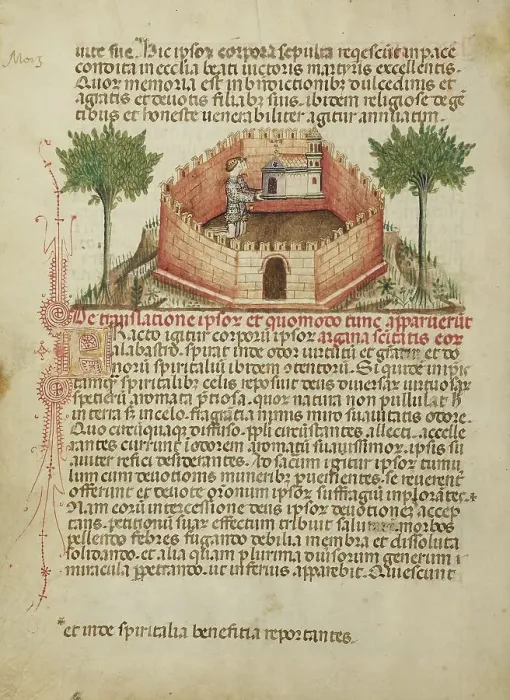 uite sue. Hic ipsoꝝ corpora sepulta reqescūt in pace
condita in ecclīa beati uictoris martyris excellentis.
Quoꝝ memoria est in bn̄dictionibꝫ dulcedinis et
agiatis et deuotis filiabꝫ suis. ibidem religiose dege
tibus et honeste uenerabiliter agitur annuatim.
De translatione ipsoꝝ et quomodo tunc apparuerūt
facto igitur corpoꝝ ipsoꝝ argana scitatis eoꝝ
alabastro. spirat inde odor uirtutū et gratiaꝝ et do
noꝝū spiritualiū ibidem
tamꝙ spiritalibꝫ celis reposuit deus diuersaꝝ uirtuosaꝝ
specieꝝ aromata p̄tiosa. quoꝝ natura non pullulat
in terra sꝫ in celo. fragrātia nimis miro suauitatis odore.
Quo circūquaꝙ diffuso. ppl̄i circūstantes allecti. accelle
rantes currunt ī odorem aromatū suauissimoꝝ. ipsis su
auiter refici desiderantes. Ad sacum igitur ipsoꝝ tumu
lum cum deuotionis muneribꝫ ꝓuenientes. se reuerent̄
offerunt et deuote oꝛonum ipsoꝝ suffragiū inplorātes.+
Nam eorū intercessione deus ipsoꝝ deuotiones accep
tans. petitionū suaꝝ effectum tribuit morbos
pellendo febres fugando debilia membra et dissoluta
solidando. et alia quam plurima diuisorum generum
miracula ꝑpetrando. ut inferius apparebit. Quiescunt
*et inde spiritalia benefitia reportantes.